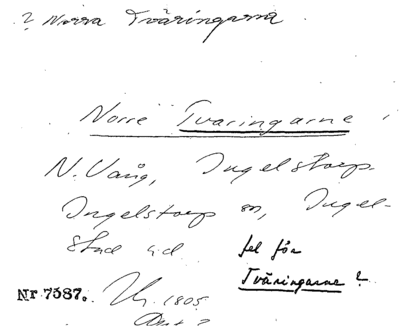 ? Norra Tväringarna
Norre Tvaringarne
N. Vång, Ingelstorp.
Ingelstorp sn, Ingel-
stad hd
fel för
Tväringarne?
Nr 7587. 1805.